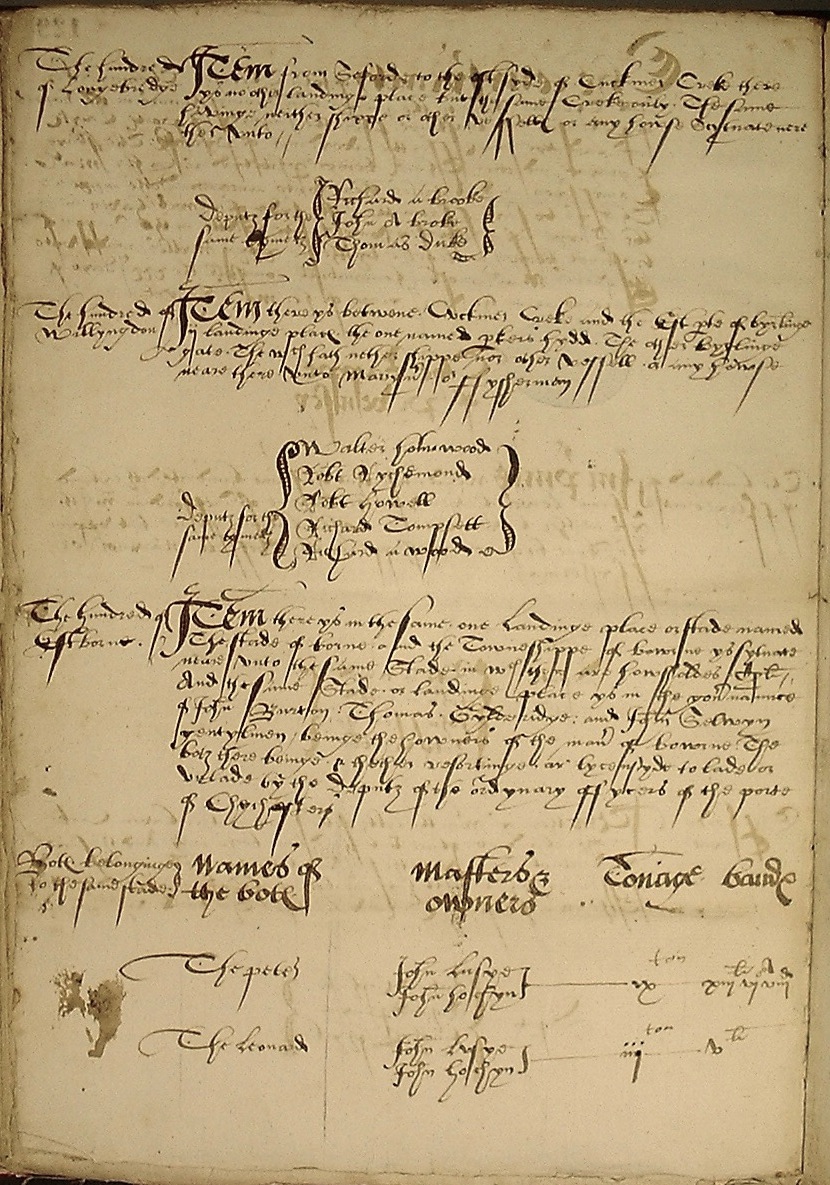 The hundred of Longebridge
ITEm from Seforde to the est syde of Cuckmer Creke there
ys no other landinge place but the same Creke only. The same
havinge neither shippe or other vessell or any house Scituate nere
ther unto
deputz for the
same
Richard a brooke
John A broke
Thomas Duke
The hundred of
Willyngdon
ITEm there ys betwene Cuckmer Creke and the Est pte of byrlinge
ij landinge place the one named pkers hydd. The other byrlinge
gate. The wch hath nether shippe nor other vessell or any howse
neare there unto Maryner or ffysherman
deputz for the
same
Walter homwood
Robt Rychemond
Robt howell
Richard Tompsett
Richard a wood
The hundred of
Estborne
ITEm there ys in the same one Landinge place or stade named
The stade of borne and the Towneshippe of bowrne ys sytuate
neare unto the same Stade in wch ther are howsholdes
And the same Stade or landinge place ys in the govrnaunce
of John Burton Thomas Gyldredge and John Selwyn
gentylmen beinge the howners of the manr of bowrne The
botz there beinge & thother resortinge ar lycensyde to lade or
unlade by the deputz of the ordynary offycers of the porte
of Chychester
Botz belonginge
to the same stade
names of
the botz
masters &
owners
Tonage
The peter
John
John
ix ton
The Leonard
John
John
iiij ton
v li